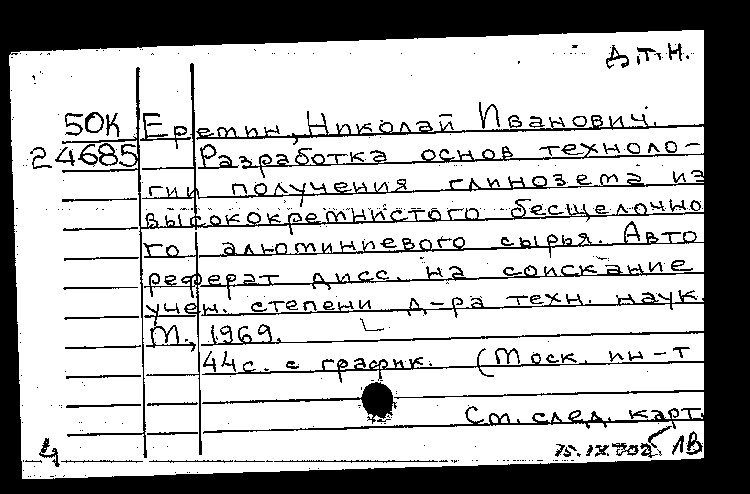 д.т.н.
50К Еремин, Николай Иванович.
24685 Разработка основ техноло-
гии получения глинозема из
высококремнистого бесщелочно
го алюминиевого сырья. Авто
реферат дисс. на соискание
учен. степени д-ра техн. наук.
М., 1969.
44с. с график. (Моск. ин-т
См. след. карт.
ЛВ